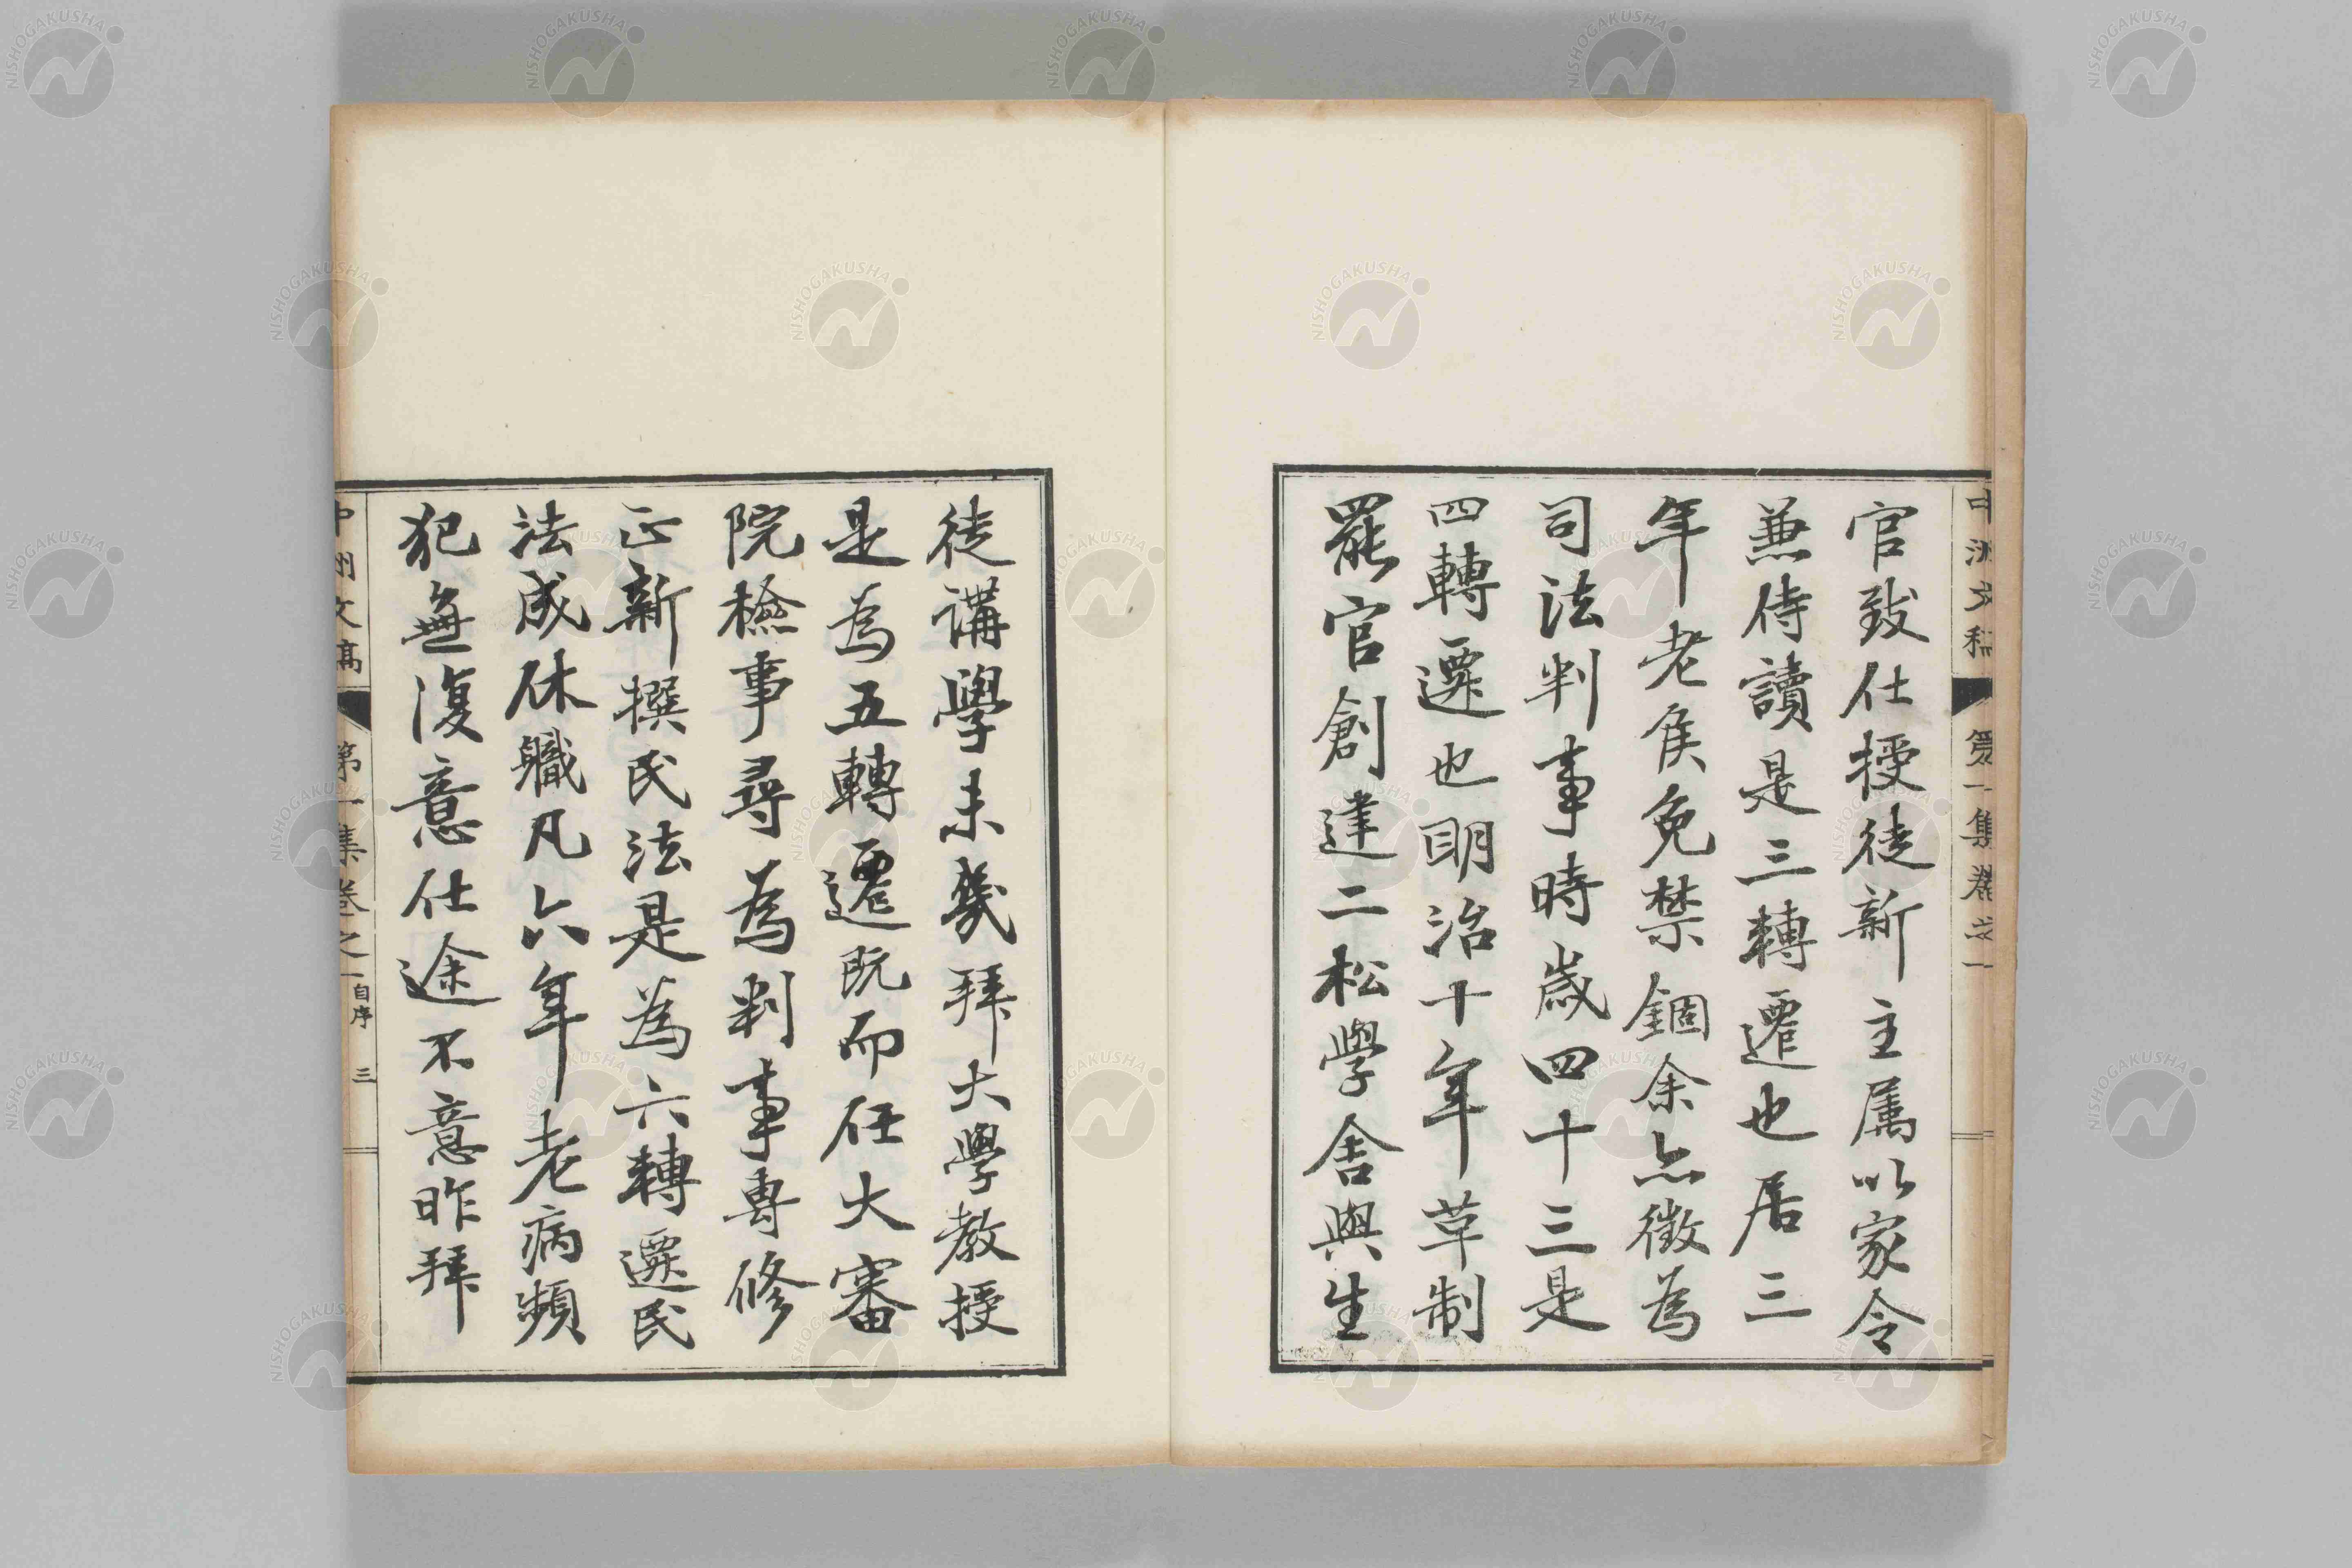 官致仕授徒新主属以家令
兼侍讀是三轉遷也居三
年老侯免禁錮余亦徴為
司法判事時歳四十三是
四轉遷也明治十年草制
罷官創建二松學舎與生
徒講學未幾拜大學教授
是為五轉遷既而任大審
院檢事尋為判事專修
正新撰民法是為六轉遷民
法成休職凡六年老病頻
犯無復意仕途不意昨拜
中洲文稿 第一集卷之一 自序 三